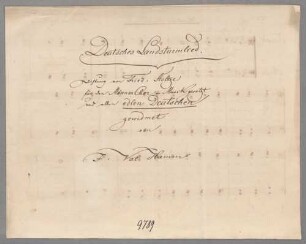 Deutsches Landsturmlied.
Dichtung von Ferd.
für den Männerchor in Musik gesetzt
und allen edlen Deutschen
gewidmet
von
F. Val.
9789